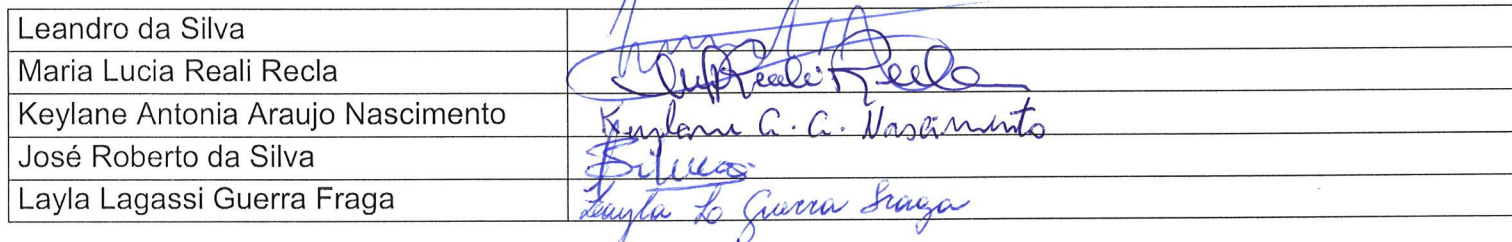 Leandro da Silva
Maria Lucia Reali Recla Reali Recla
Keylane Antonia Araujo Nascimento Keylane A. A. Nascimento
José Roberto da Silva
Layla Lagassi Guerra Fraga Layla L Guerra Fraga